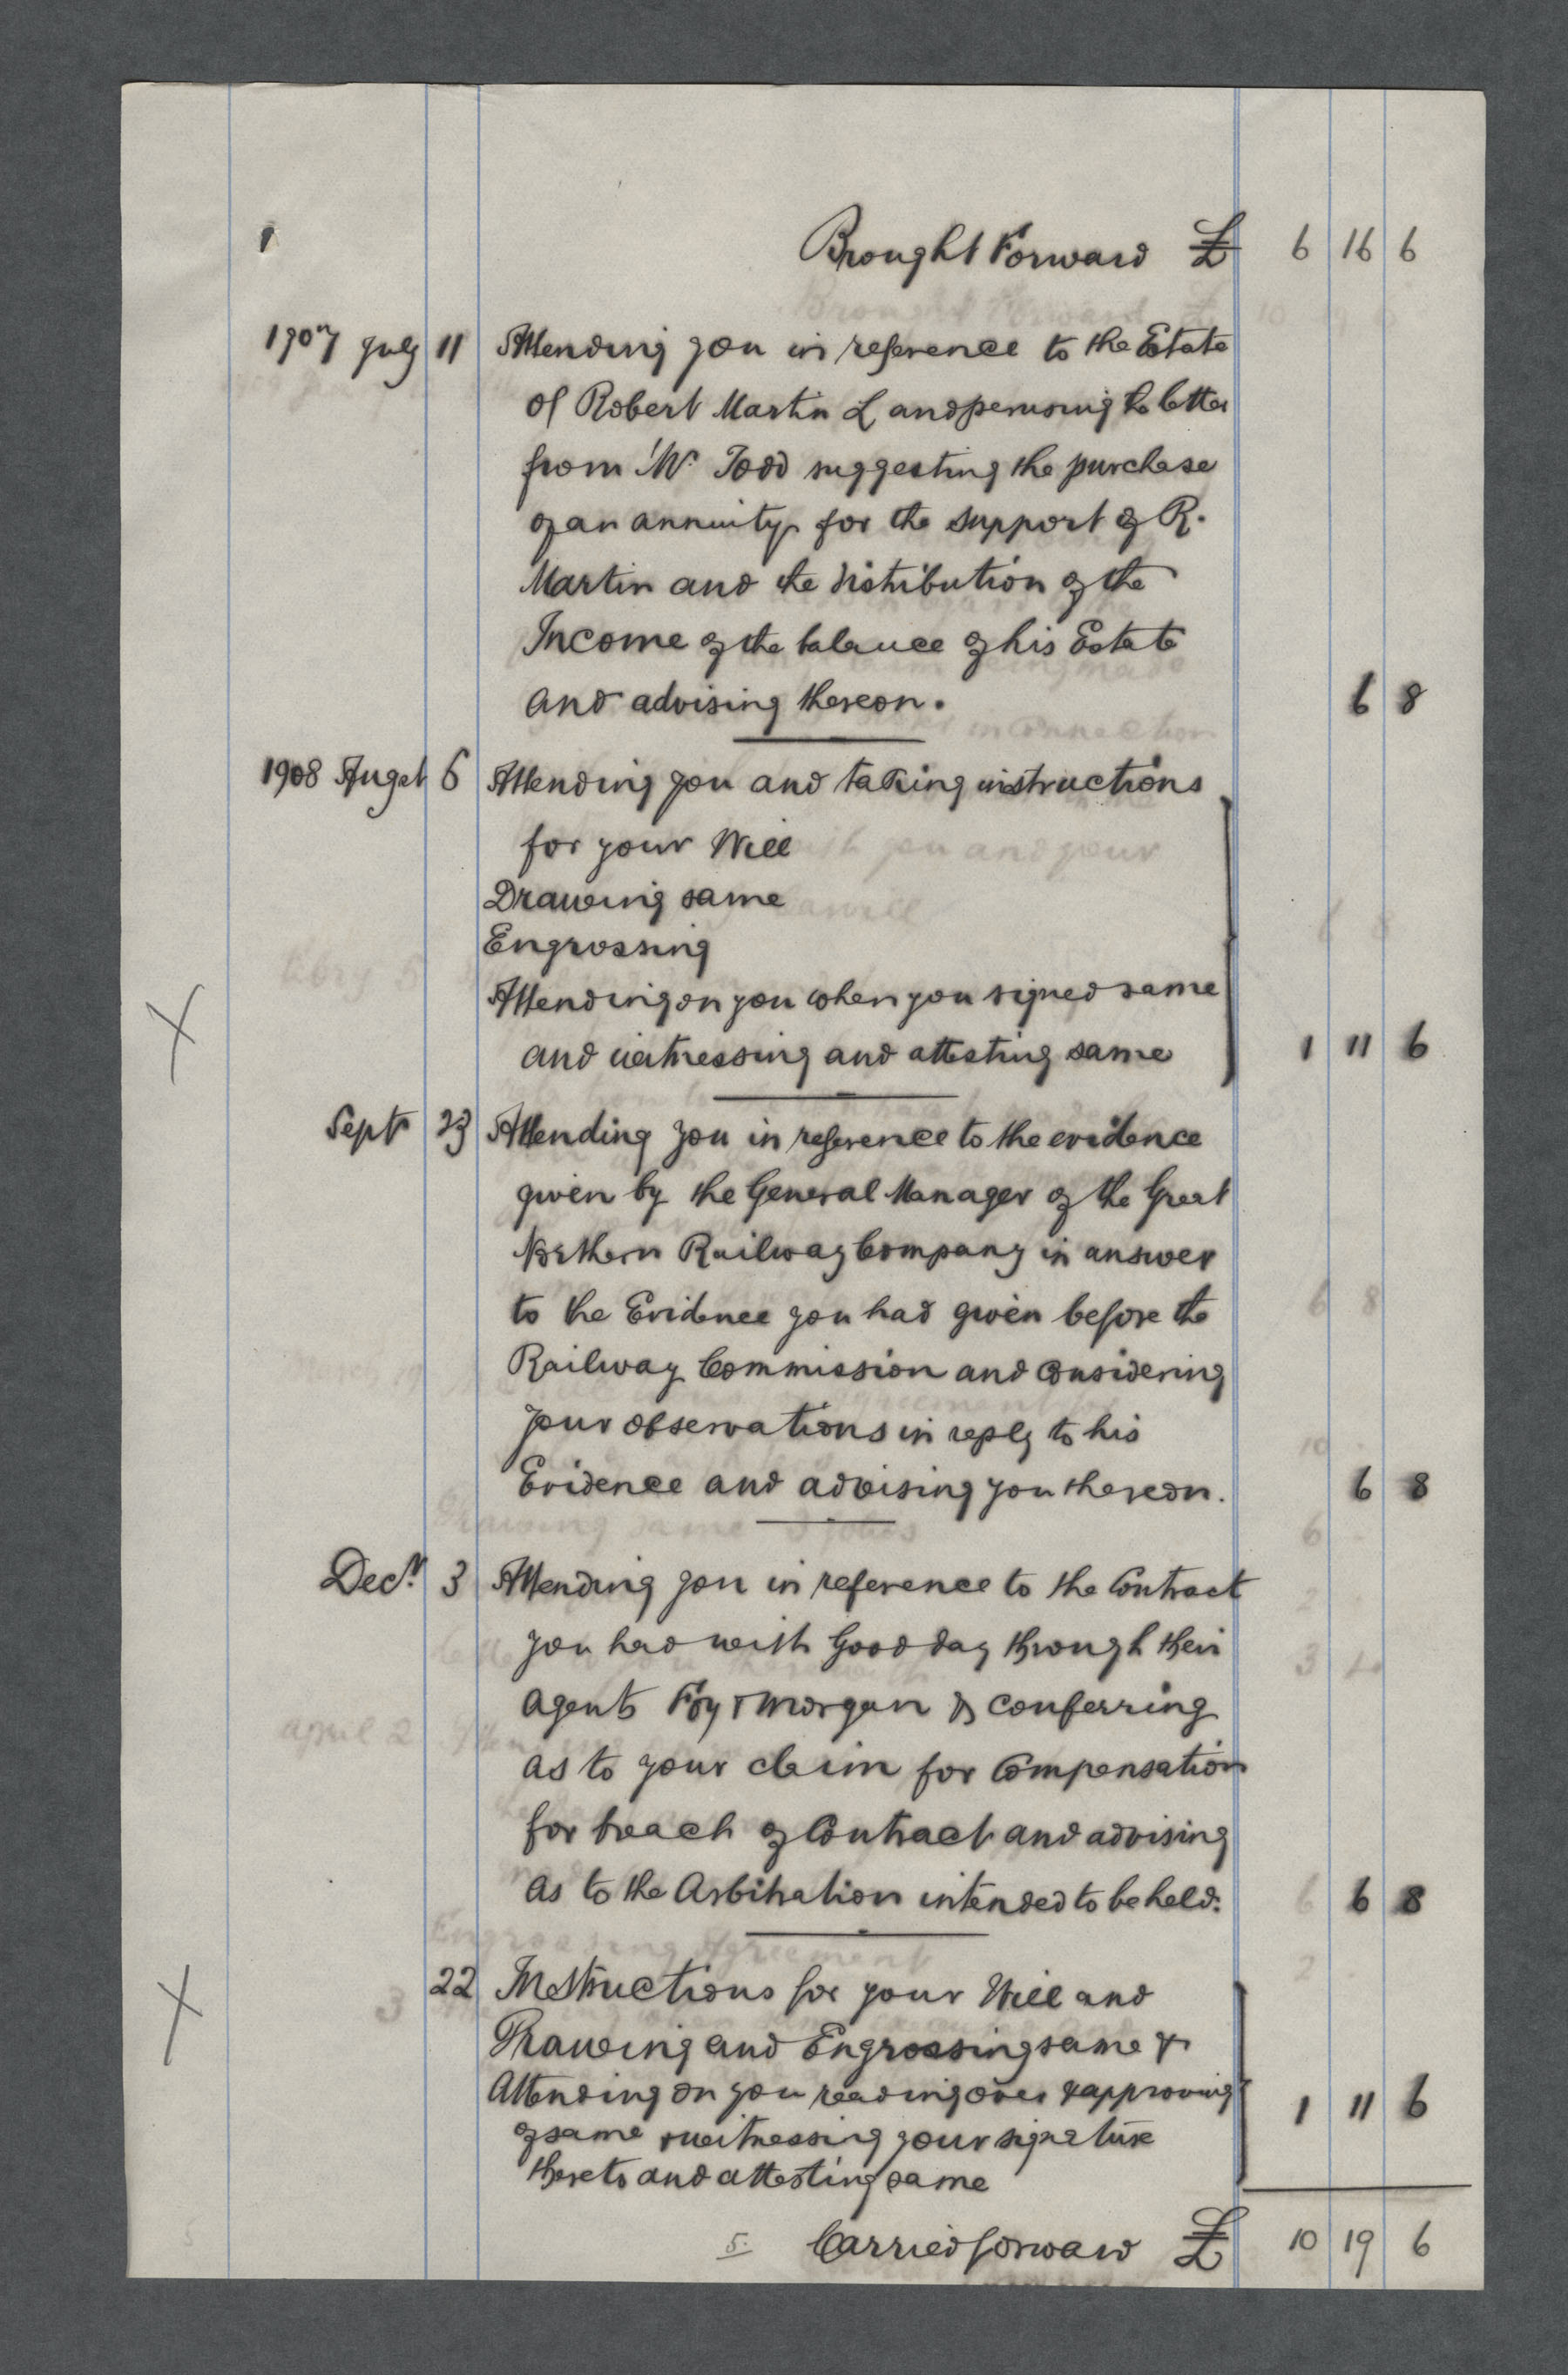 Brought Forward £ 6 16 6
1907 July 11 Attending you in reference to the Estate
of Robert Martin and perusing letter
from Mr Todd suggesting the purchase
of an annuity for the support of R.
Martin and the distribution of the
Income of the balance of his Estate
and advising thereon. 6 8
1908 Augst 6 Attending you and taking instructions
for your Will
Drawing same
Engrossing
Attending on you when you signed same
and witnessing and attesting same 1 11 6
X
Sept 23 Attending you in reference to the evidence
given by the General Manager of the Great
Northern Railway Company in answer
to the Evidence you had given before the
Railway Commission and considering
your observations in reply to his
Evidence and advising you thereon. 6 8
Decr. 3 Attending you in reference to the Contract
you had with Goodday through their
agents Foy & Morgan & conferring
as to your claim for Compensation
for breach of Contract and advising
as to the Arbitration intended to be held. 6 8
X 22 Instructions for your Will and
Drawing and Engrossing same &
Attending on you reading over & approving
of same & witnessing your signature
thereto and attesting same 1 11 6
5. Carried forward £ 10 19 6